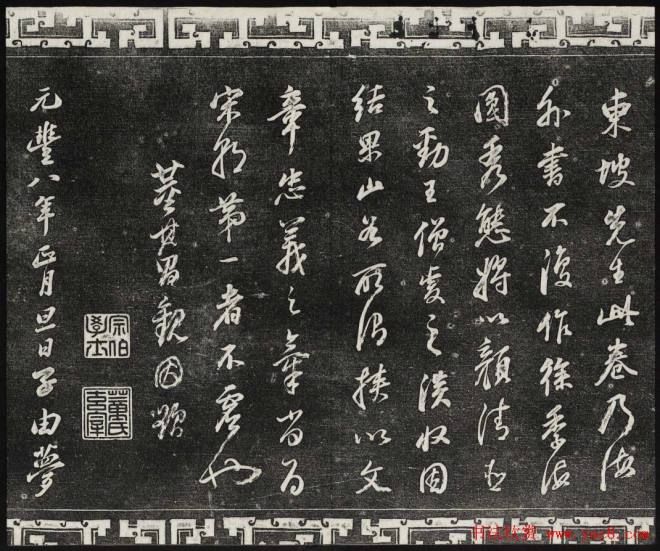 東坡先生此卷乃海
外書不復作徐季海
圓秀態將以顏清臣
之勁王僧虔之淡收因
結果山谷所謂挾以文
章忠義之氣當為
宋朝第一者不虛也
董其昌觀因題
宗伯學士
董氏玄宰
元豐八年正月旦日子由夢
书法欣赏 www.yac8.com